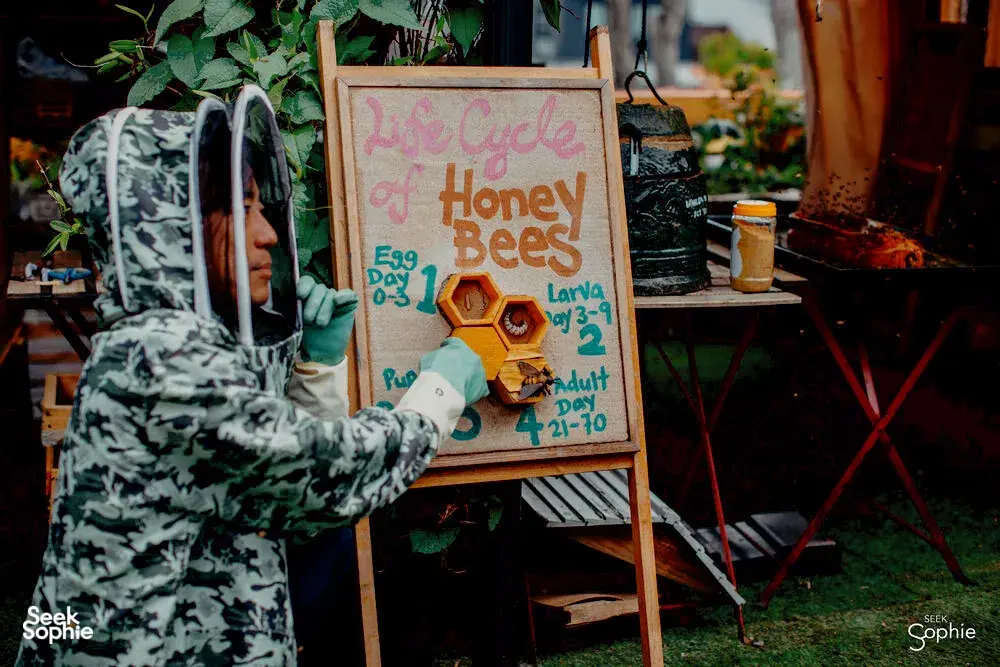 Life Cycle
of Honey
Bees
Egg
Day
0-3
1
Larva
Day 3-9
2
Adult
Day
21-70
4
Seek
Sophie
SEEK
Sophie